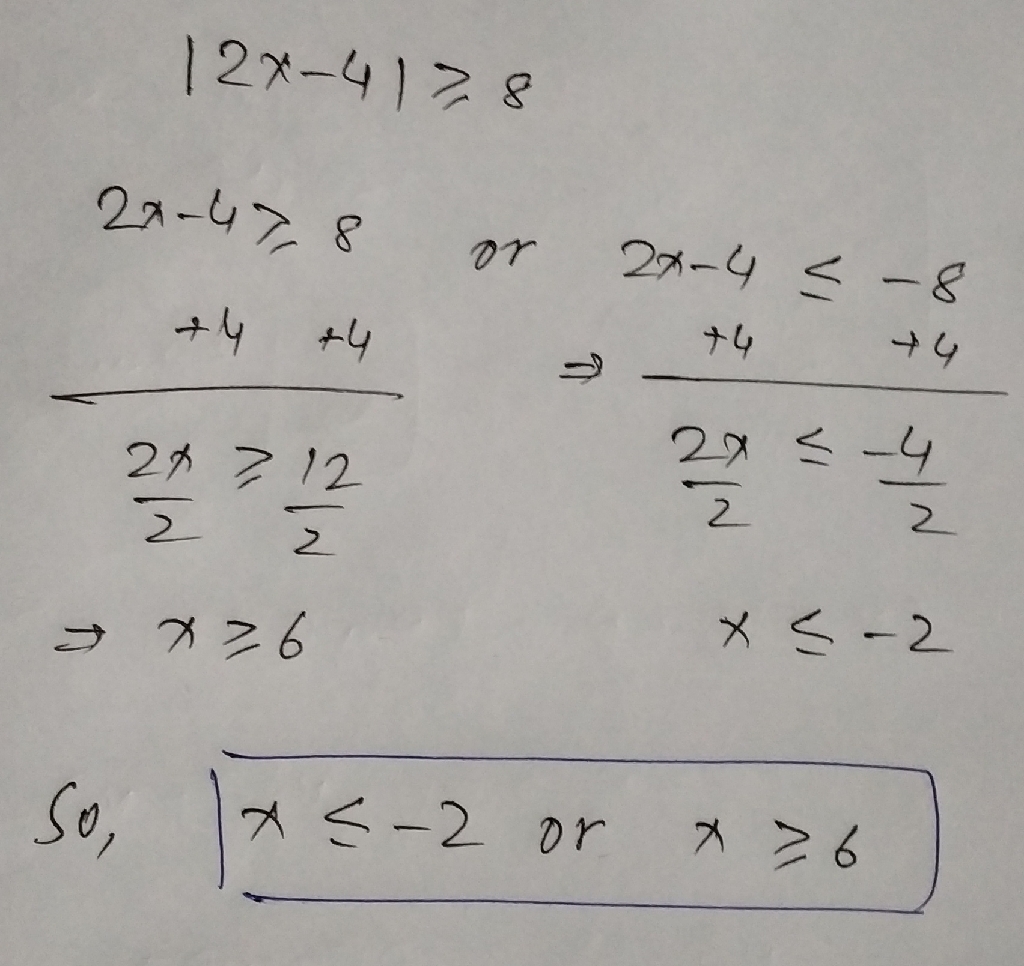 |2x-4| ≥ 8
2x-4 ≥ 8 or 2x-4 ≤ -8
+4 +4 ⇒ +4 +4
2x/2 ≥ 12/2 2x/2 ≤ -4/2
⇒ x ≥ 6 x ≤ -2
So, x ≤ -2 or x ≥ 6